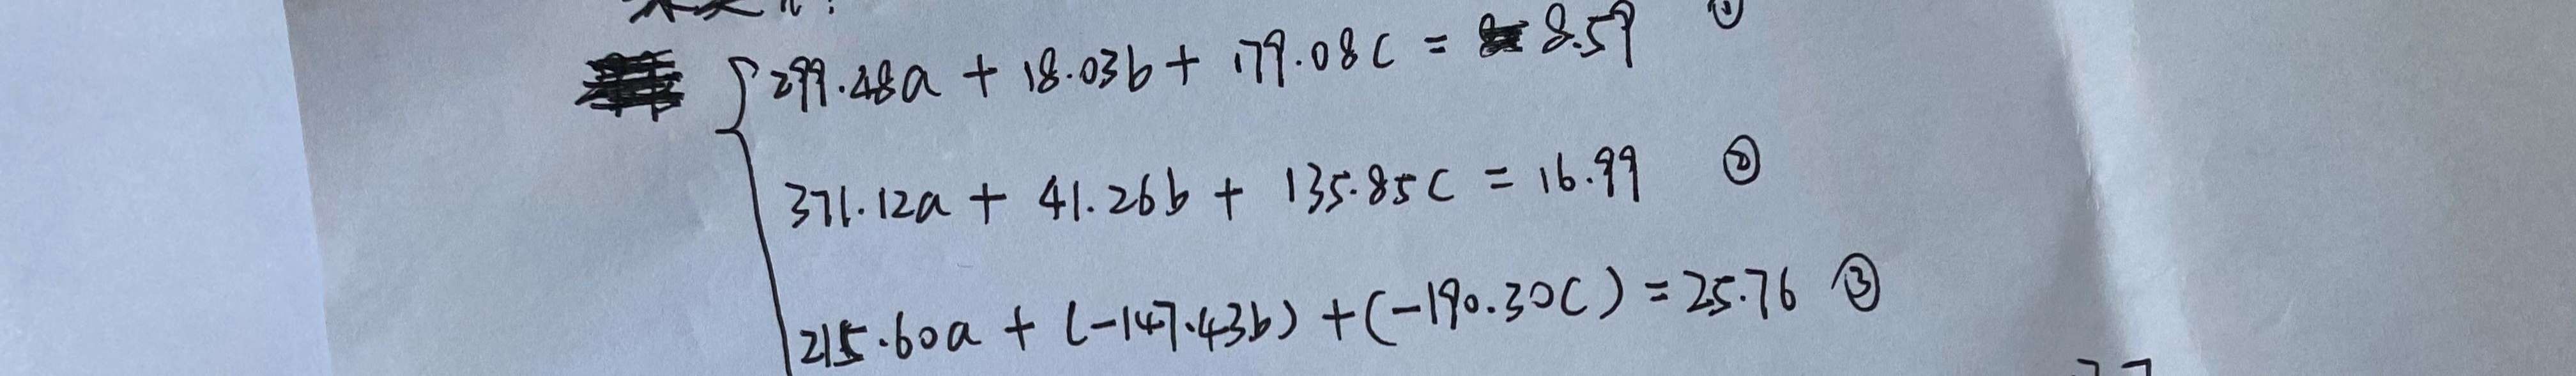 299.48a + 18.03b + 179.08c = 8.59 ①
371.12a + 41.26b + 135.85c = 16.99 ②
215.60a + (-147.43b) + (-190.30c) = 25.76 ③